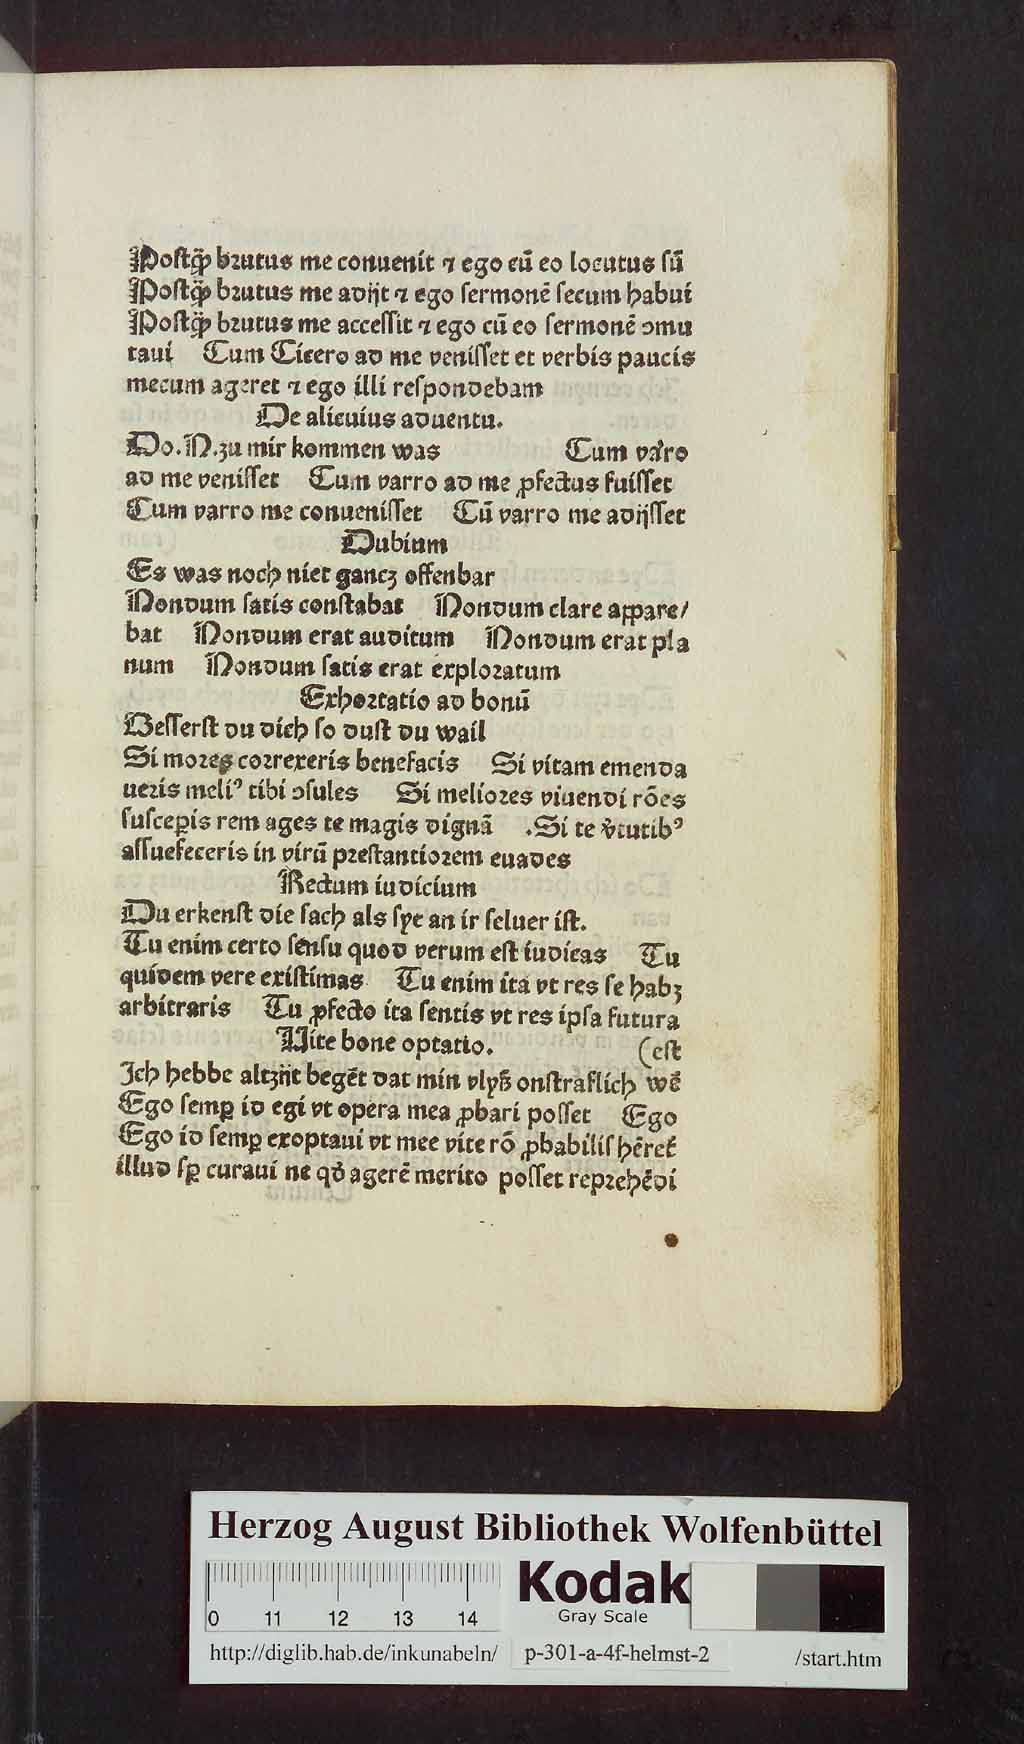 Postqȝ brutus me conuenit ⁊ ego cū eo locutus sū
Postqȝ brutus me adijt ⁊ ego sermonē secum habui
Postqȝ brutus me accessit ⁊ ego cū eo sermonē ɔmu
taui Cum Cicero ad me venisset et verbis paucis
mecum ageret ⁊ ego illi respondebam
De alicuius aduentu.
Do.N.zu mir kommen was Cum varro
ad me venisset Cum varro ad me ꝓfectus fuisset
Cum varro me conuenisset Cū varro me adijsset
Dubium
Es was noch niet gancz offenbar
Nondum satis constabat Nondum clare appare/
bat Nondum erat auditum Nondum erat pla
num Nondum satis erat exploratum
Exhortatio ad bonū
Besserst du dich so dust du wail
Si mores correxeris benefacis Si vitam emenda
ueris meliꝰ tibi ɔsules Si meliores viuendi rōes
susceperis rem ages te magis dignā .Si te v̓tutibꝰ
assuefeceris in virū prestantiorem euades
Rectum iudicium
Du erkenst die sach als sye an ir seluer ist.
Tu enim certo sensu quod verum est iudicas Tu
quidem vere existimas Tu enim ita vt res se habꝫ
arbitraris Tu ꝓfecto ita sentis vt res ipsa futura
Uite bone optatio. (est
Ich hebbe altzijt begēt dat min vlyß onstraflich wē
Ego semꝑ id egi vt opera mea ꝓbari posset Ego
Ego id semꝑ exoptaui vt mee vite rō ꝓbabilis hēret̄
illud sꝑ curaui ne qd̓ agerē merito posset reprehēdi
Herzog August Bibliothek Wolfenbüttel
0 11 12 13 14
Kodak
Gray Scale
http://diglib.hab.de/inkunabeln/ p-301-a-4f-helmst-2 /start.htm